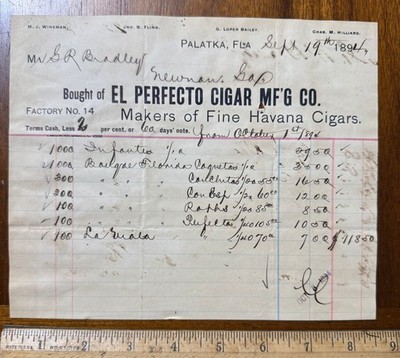 H. J. WINEMAN. JNO. B. FLING. G. LOPER BAILEY. CHAS. M. WILLIARD.
PALATKA, FLA Sept 19th 1894
Mr G R Bradley
Newnan, Ga
Bought of EL PERFECTO CIGAR MF'G CO.
FACTORY No. 14 Makers of Fine Havana Cigars.
Terms Cash, Less 2 per cent. or 60 days' note. (from October 1st/94
1000 Infantes 1/10
1000 Florida Coquetas 1/10 35.00
300 " " Conchitas 1/20 55.00 16.50
200 " " Con Esp 1/20 60.00 12.00
100 " " 1/20 85.00 8.50
100 " " Perfectos 1/40 105.00 10.50
100 La " 1/40 70 7.00 118.50
1 2 3 4 5 6 7 8 9